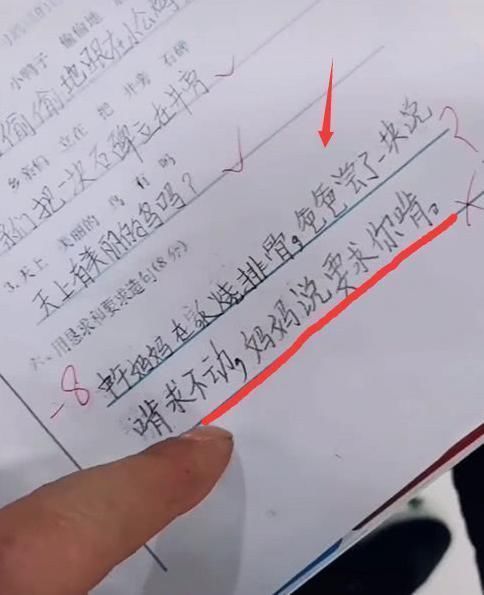 小鸭子 偷偷地
偷偷地跟在小
乡亲们 立在 把 井旁 石碑
我们把一块石碑立在井旁
3. 天上 美丽的 鸟 有 吗
天上有美丽的鸟吗？
六、用恳求和要求造句(8分)
-8
中午妈妈在家烧排骨，爸爸尝了一块说
啃求不动，妈妈说要求你啃。